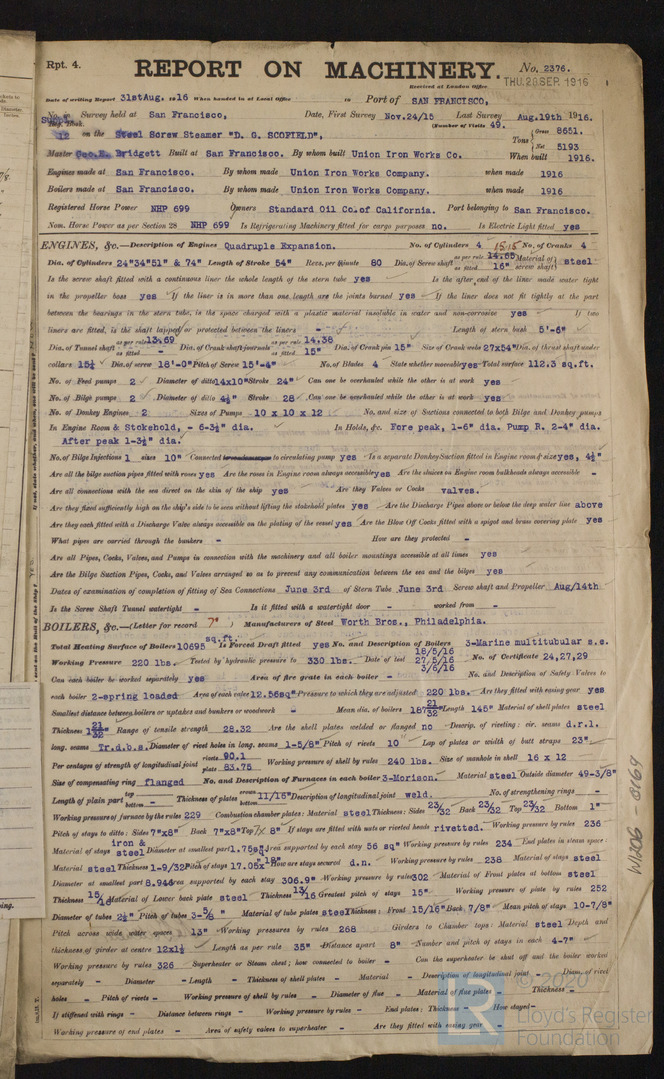 Rpt. 4.
REPORT ON MACHINERY.
No. 2376.
Received at London Office THU. 28 SEP. 1916
Date of writing Report 31st Aug. 1916 When handed in at Local Office to Port of SAN FRANCISCO,
No. in Survey held at San Francisco, Date, First Survey Nov.24/15 Last Survey Aug.19th 1916.
Reg. Book. (Number of Visits 49.
12 on the Steel Screw Steamer "D. G. SCOFIELD", Tons Gross 8651. Net 5193
Master Geo.E. Bridgett Built at San Francisco. By whom built Union Iron Works Co. When built 1916.
Engines made at San Francisco. By whom made Union Iron Works Company. when made 1916
Boilers made at San Francisco. By whom made Union Iron Works Company. when made 1916
Registered Horse Power NHP 699 Owners Standard Oil Co.of California. Port belonging to San Francisco.
Nom. Horse Power as per Section 28 NHP 699 Is Refrigerating Machinery fitted for cargo purposes no. Is Electric Light fitted yes
ENGINES, &c.—Description of Engines Quadruple Expansion. No. of Cylinders 4 No. of Cranks 4
Dia. of Cylinders 24"34"51" & 74" Length of Stroke 54" Revs. per Minute 80 Dia. of Screw shaft as per rule 14.65 as fitted 16" Material of screw shaft steel
Is the screw shaft fitted with a continuous liner the whole length of the stern tube yes Is the after end of the liner made water tight
in the propeller boss yes If the liner is in more than one length are the joints burned yes If the liner does not fit tightly at the part
between the bearings in the stern tube, is the space charged with a plastic material insoluble in water and non-corrosive yes If two
liners are fitted, is the shaft lapped or protected between the liners - Length of stern bush 5'-6"
Dia. of Tunnel shaft as per rule 13.69 as fitted - Dia. of Crank shaft journals as per rule 14.38 as fitted 15" Dia. of Crank pin 15" Size of Crank webs 27x54" Dia. of thrust shaft under
collars 15¼ Dia. of screw 18'-0" Pitch of Screw 15'-4" No. of Blades 4 State whether moveable yes Total surface 112.3 sq.ft.
No. of Feed pumps 2 Diameter of ditto 14x10" Stroke 24" Can one be overhauled while the other is at work yes
No. of Bilge pumps 2 Diameter of ditto 4½ Stroke 28 Can one be overhauled while the other is at work yes
No. of Donkey Engines 2 Sizes of Pumps 10 x 10 x 12 No. and size of Suctions connected to both Bilge and Donkey pumps
In Engine Room & Stokehold, - 6-3½" dia. In Holds, &c. Fore peak, 1-6" dia. Pump R. 2-4" dia.
After peak 1-3½" dia.
No. of Bilge Injections 1 sizes 10" Connected to circulating pump yes Is a separate Donkey Suction fitted in Engine room & size yes, 4½"
Are all the bilge suction pipes fitted with roses yes Are the roses in Engine room always accessible yes Are the sluices on Engine room bulkheads always accessible -
Are all connections with the sea direct on the skin of the ship yes Are they Valves or Cocks valves.
Are they fixed sufficiently high on the ship's side to be seen without lifting the stokehold plates yes Are the Discharge Pipes above or below the deep water line above
Are they each fitted with a Discharge Valve always accessible on the plating of the vessel yes Are the Blow Off Cocks fitted with a spigot and brass covering plate yes
What pipes are carried through the bunkers - How are they protected -
Are all Pipes, Cocks, Valves, and Pumps in connection with the machinery and all boiler mountings accessible at all times yes
Are the Bilge Suction Pipes, Cocks, and Valves arranged so as to prevent any communication between the sea and the bilges yes
Dates of examination of completion of fitting of Sea Connections June 3rd of Stern Tube June 3rd Screw shaft and Propeller Aug/14th
Is the Screw Shaft Tunnel watertight - Is it fitted with a watertight door - worked from -
BOILERS, &c.—(Letter for record ) Manufacturers of Steel Worth Bros., Philadelphia.
Total Heating Surface of Boilers 10695 sq.ft. Is Forced Draft fitted yes No. and Description of Boilers 3-Marine multitubular s.e.
Working Pressure 220 lbs. Tested by hydraulic pressure to 330 lbs. Date of test 18/5/16 27/5/16 3/6/16 No. of Certificate 24,27,29
Can each boiler be worked separately yes Area of fire grate in each boiler - No. and Description of Safety Valves to
each boiler 2-spring loaded Area of each valve 12.56sq" Pressure to which they are adjusted 220 lbs. Are they fitted with easing gear yes
Smallest distance between boilers or uptakes and bunkers or woodwork - Mean dia. of boilers 187 21/32 Length 145" Material of shell plates steel
Thickness 1 21/32 Range of tensile strength 28.32 Are the shell plates welded or flanged no Descrip. of riveting: cir. seams d.r.l.
long. seams Tr.d.b.s. Diameter of rivet holes in long. seams 1-5/8" Pitch of rivets 10 Lap of plates or width of butt straps 23"
Per centages of strength of longitudinal joint rivets 90.1 plate 83.75 Working pressure of shell by rules 240 lbs. Size of manhole in shell 16 x 12
Size of compensating ring flanged No. and Description of Furnaces in each boiler 3-Morison. Material steel Outside diameter 49-3/8"
Length of plain part top - bottom - Thickness of plates crown bottom 11/16" Description of longitudinal joint weld. No. of strengthening rings -
Working pressure of furnace by the rules 229 Combustion chamber plates: Material steel Thickness: Sides 23/32 Back 23/32 Top 23/32 Bottom 1"
Pitch of stays to ditto: Sides 7"x8" Back 7"x8" Top 7x 8" If stays are fitted with nuts or riveted heads rivetted. Working pressure by rules 236
Material of stays iron & steel Diameter at smallest part 1.75sq" Area supported by each stay 56 sq" Working pressure by rules 234 End plates in steam space:
Material steel Thickness 1-9/32 Pitch of stays 17.05x18" How are stays secured d.n. Working pressure by rules 238 Material of stays steel
Diameter at smallest part 8.946 Area supported by each stay 306.9" Working pressure by rules 302 Material of Front plates at bottom steel
Thickness 15/16 Material of Lower back plate steel Thickness 13/16 Greatest pitch of stays 15" Working pressure of plate by rules 252
Diameter of tubes 2½" Pitch of tubes 3-5/8 " Material of tube plates steel Thickness: Front 15/16" Back 7/8" Mean pitch of stays 10-7/8"
Pitch across wide water spaces 13" Working pressures by rules 268 Girders to Chamber tops: Material steel Depth and
thickness of girder at centre 12x1½ Length as per rule 35" Distance apart 8" Number and pitch of stays in each 4-7"
Working pressure by rules 326 Superheater or Steam chest; how connected to boiler - Can the superheater be shut off and the boiler worked
separately - Diameter - Length - Thickness of shell plates - Material - Description of longitudinal joint Diam. of rivet
holes - Pitch of rivets - Working pressure of shell by rules - Diameter of flue - Material of flue plates Thickness -
If stiffened with rings - Distance between rings - Working pressure by rules - End plates: Thickness How stayed -
Working pressure of end plates - Area of safety valves to superheater - Are they fitted with easing gear -
W1206-0164
© 2020
LR
Lloyd's Register
Foundation